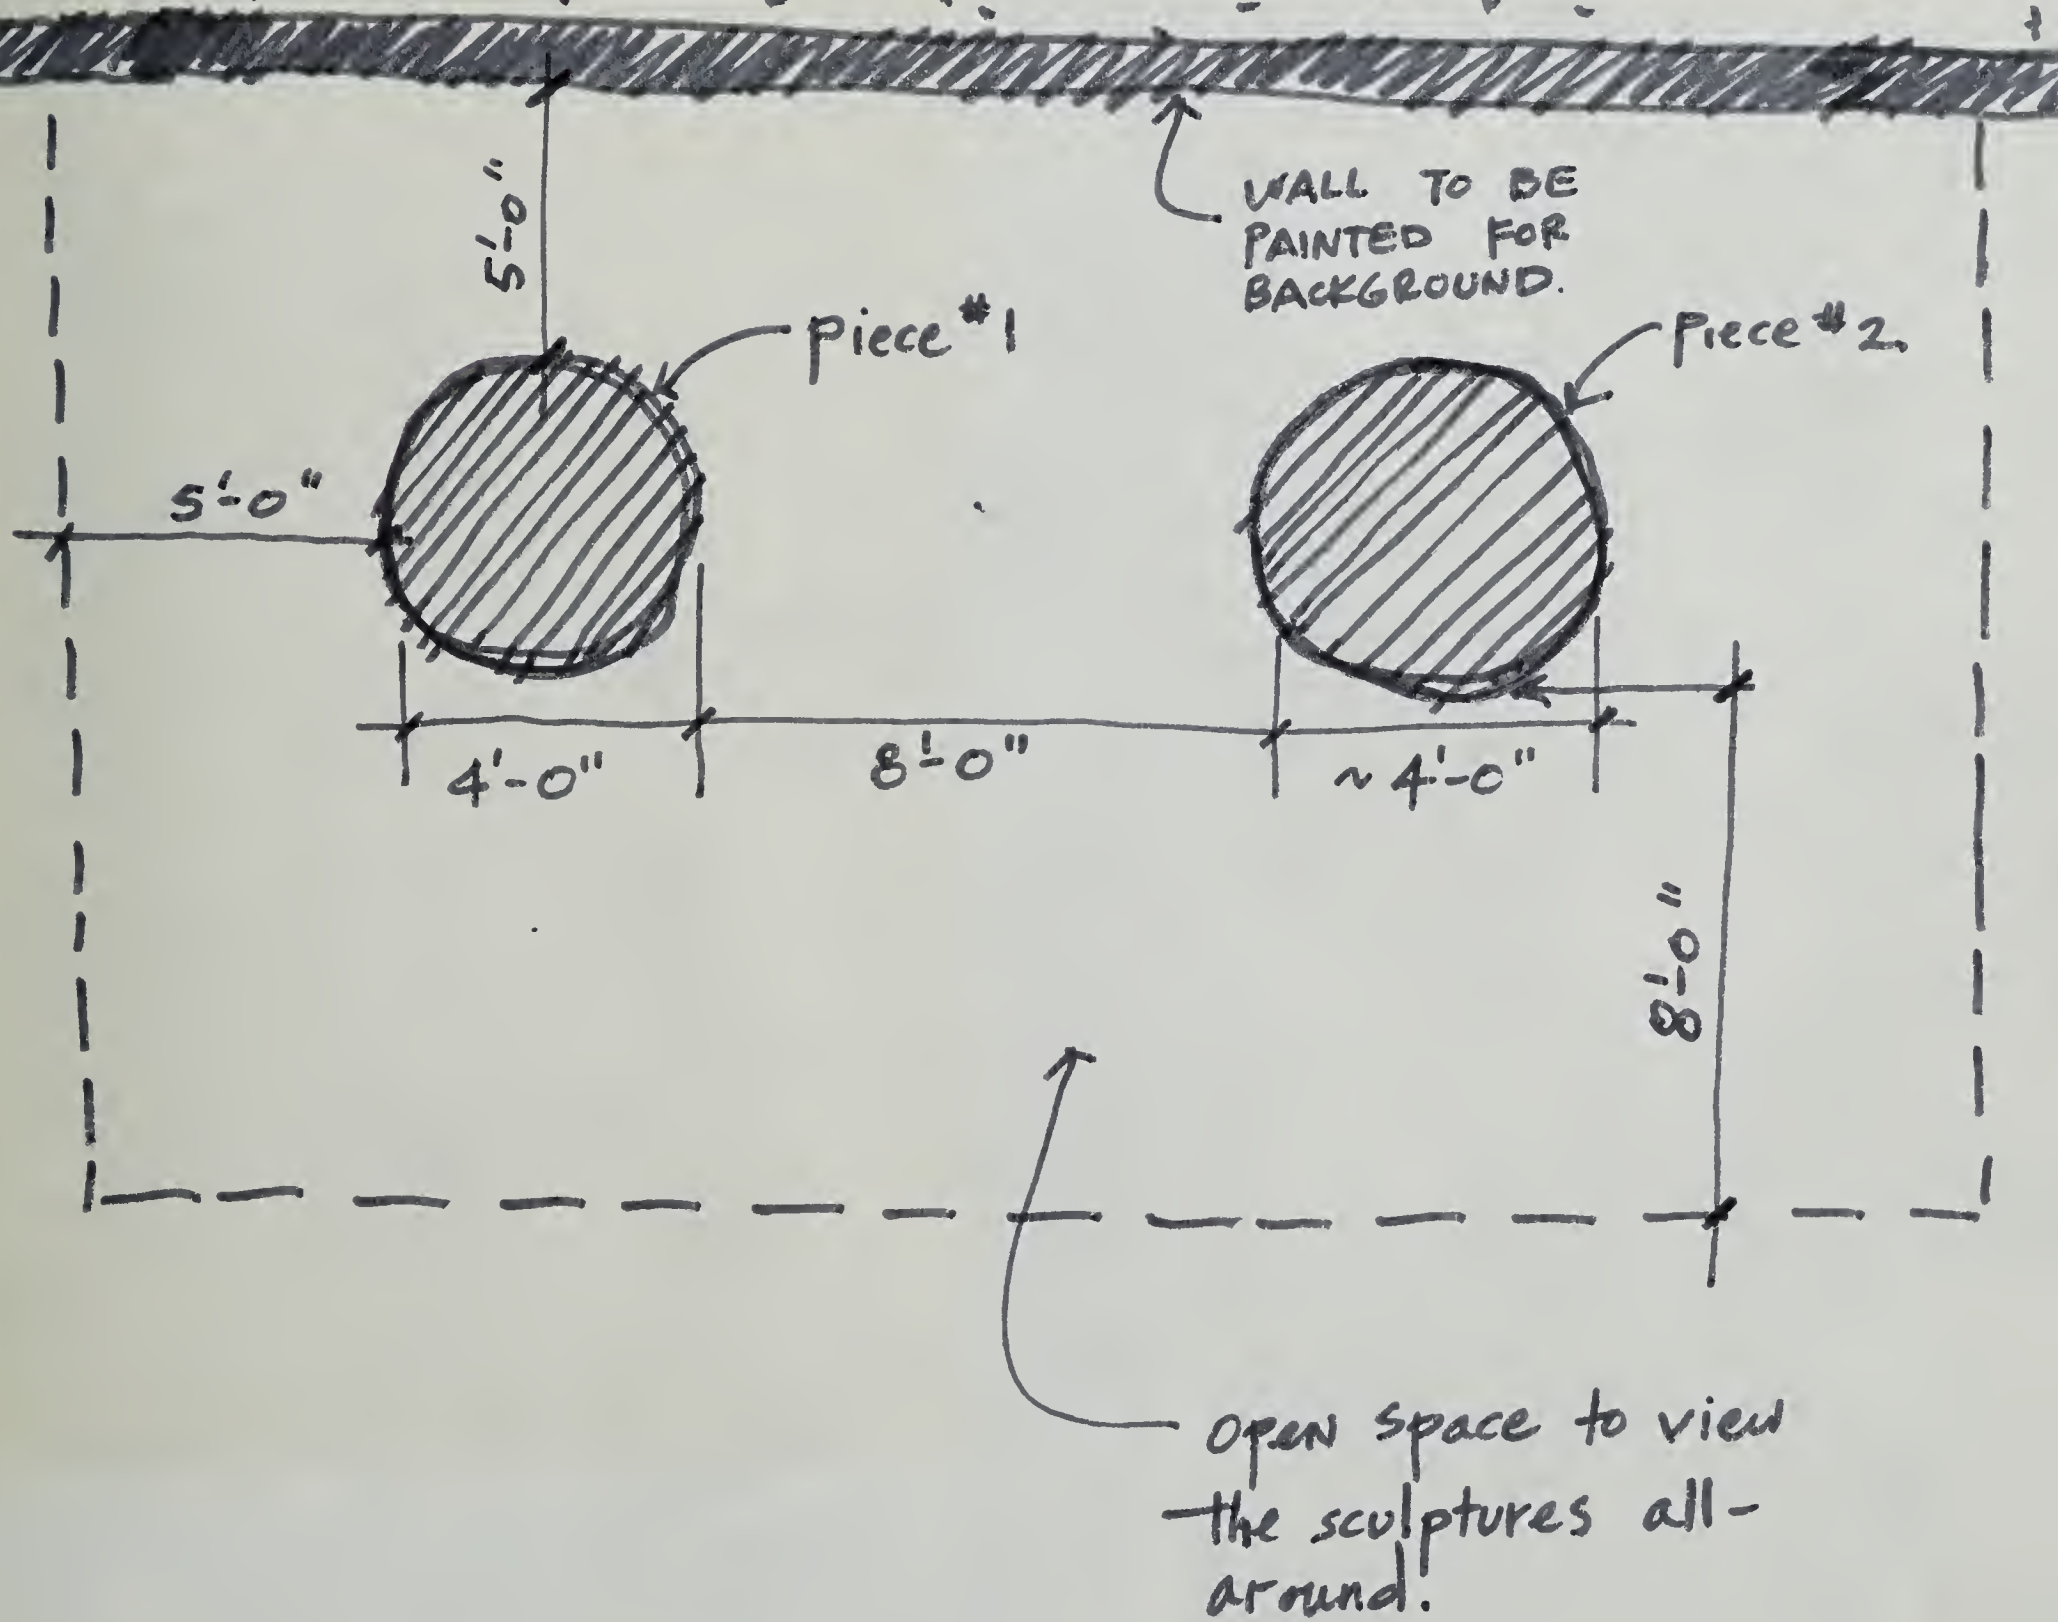 5'-0"
WALL TO BE
PAINTED FOR
BACKGROUND.
piece #1
piece #2.
5'-0"
4'-0"
8'-0"
~ 4'-0"
8'-0"
open space to view
the sculptures all-
around.